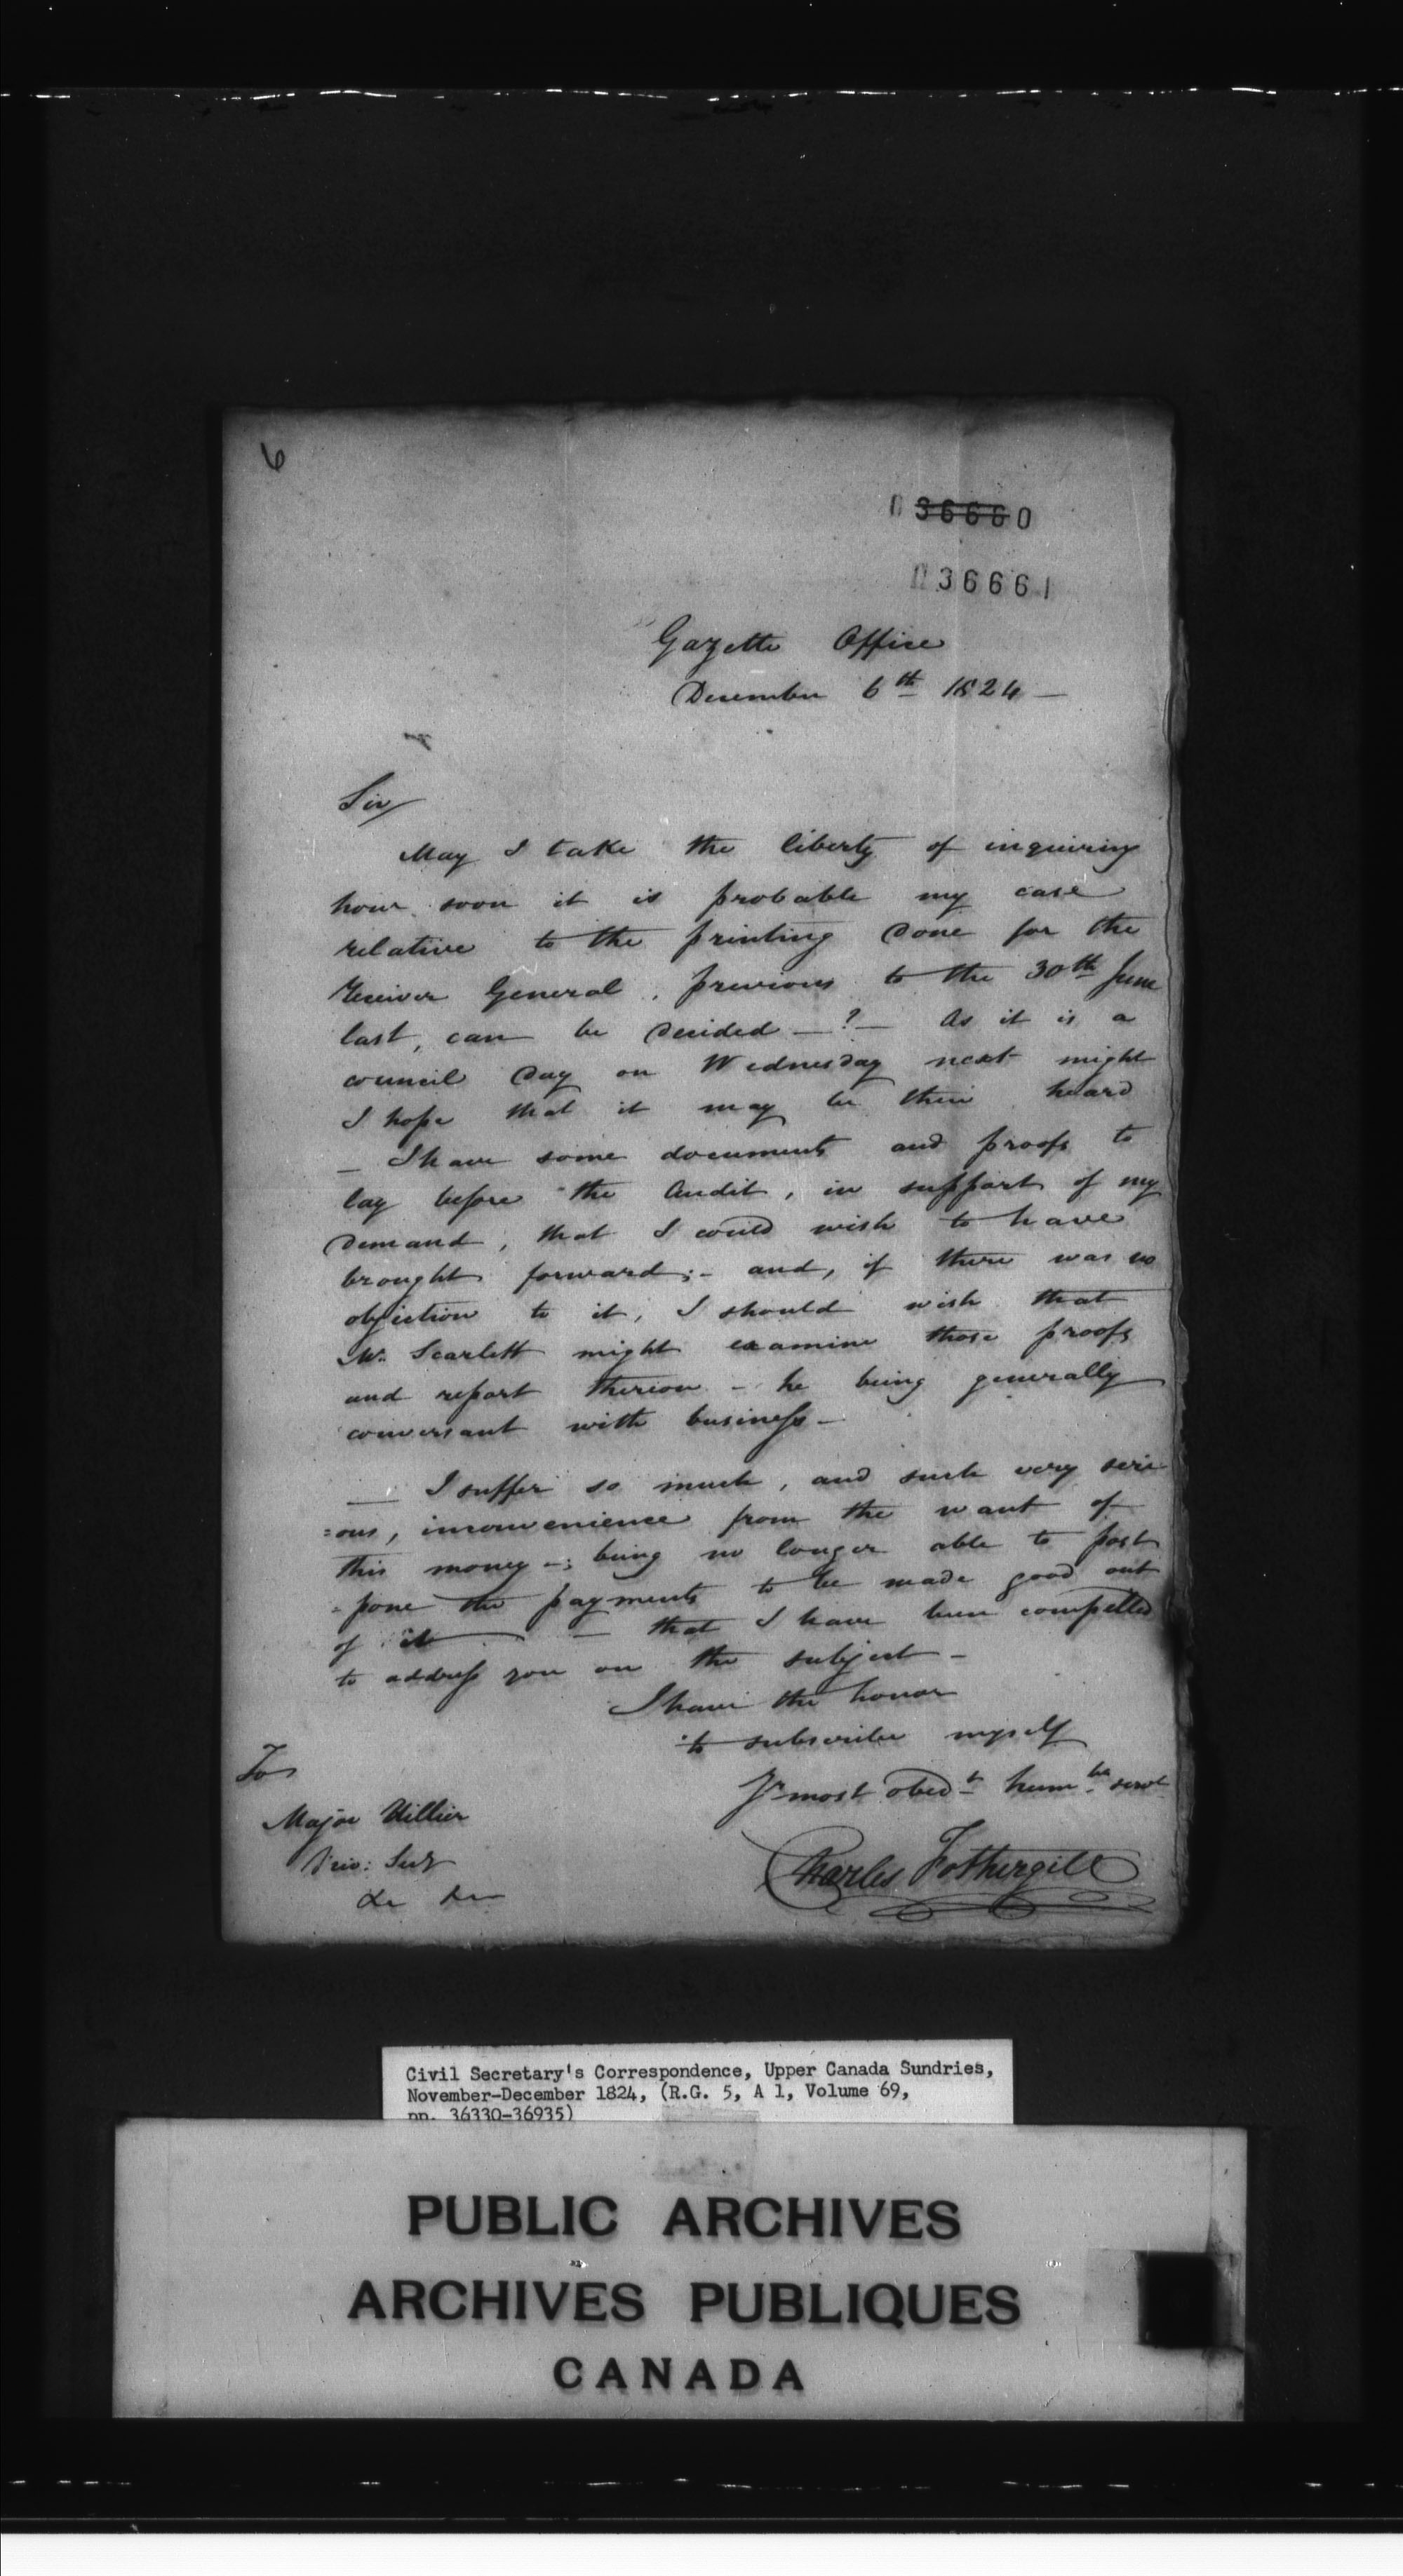 6
036660
036661
Gazette Office
December 6th 1824 —
Sir
May I take the liberty of inquiring
how soon it is probable my case
relative to the printing done for the
Receiver General, previous to the 30th June
last, can be decided — ? — As it is a
council day on Wednesday next might
I hope that it may be then heard
— I have some documents and proofs to
lay before the Audit, in support of my
demand, that I could wish to have
brought forward; - and, if there was no
objection to it, I should wish that
Mr. Scarlett might examine those proofs
and report thereon - he being generally
conversant with business —
— I suffer so much, and such very seri
=ous, inconvenience from the want of
this money -; being no longer able to post
=pone the payments to be made good out
of it — — that I have been compelled
to address you on the subject —
I have the honor
to subscribe myself
Yr most obedt humble servt
Charles Fothergill
To
Major Hillier
Priv: Secy
&c &c
Civil Secretary's Correspondence, Upper Canada Sundries,
November-December 1824, (R.G. 5, A 1, Volume 69,
pp. 36330-36935)
PUBLIC ARCHIVES
ARCHIVES PUBLIQUES
CANADA